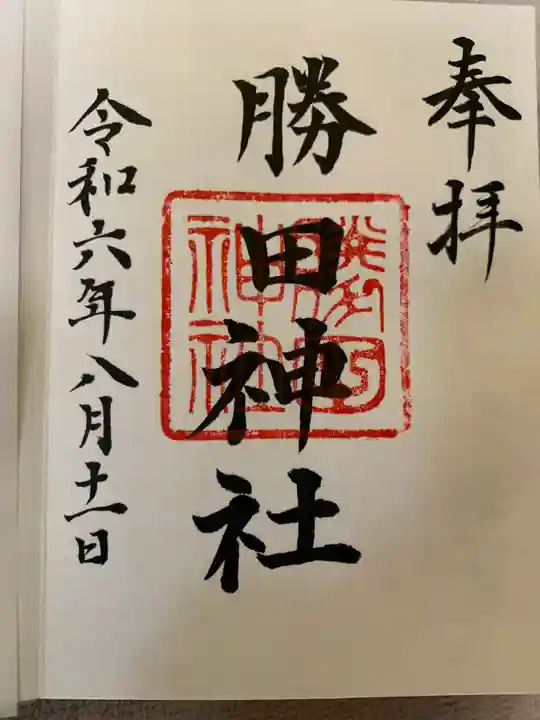 奉拝
勝田神社
令和六年八月十一日